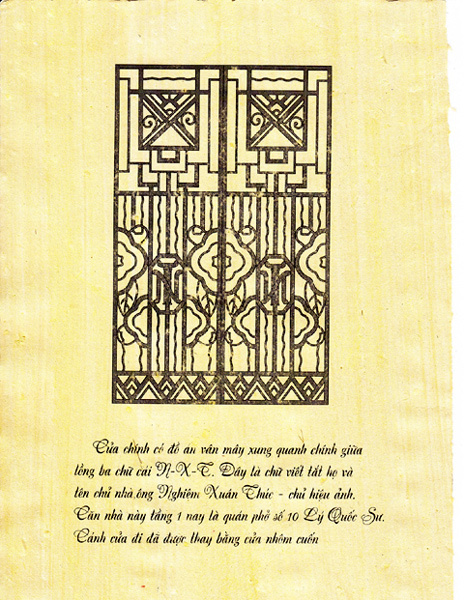 Cửa chính có đồ án vân mây xung quanh chính giữa
lồng ba chữ cái N-X-T. Đây là chữ viết tắt họ và
tên chủ nhà ông Nghiêm Xuân Thức - chủ hiệu ảnh.
Căn nhà này tầng 1 nay là quán phở số 10 Lý Quốc Sư.
Cánh cửa đi đã được thay bằng cửa nhôm cuốn